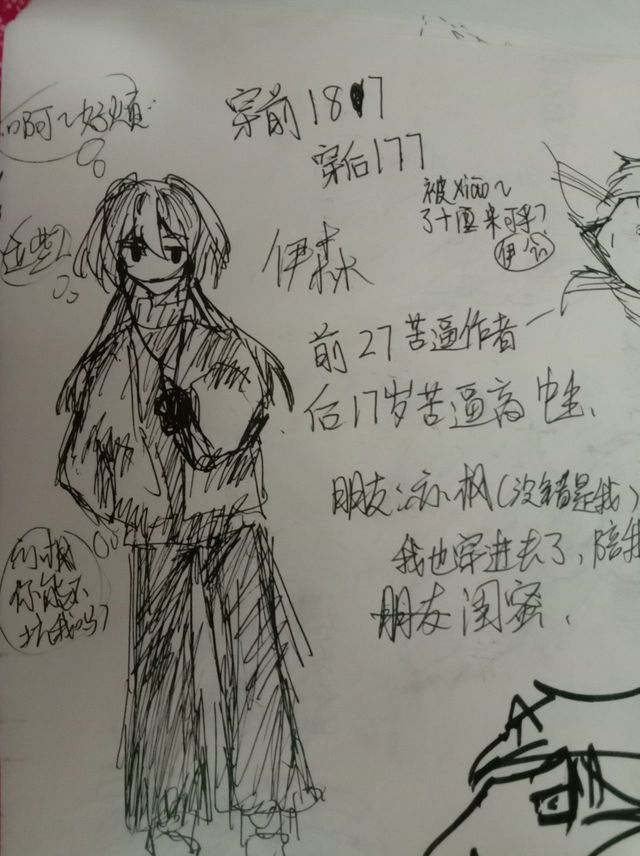 啊~好烦
穿前187
穿后177
被xiao~
了十厘米可乎?
伊森
前27苦逼作者
后17岁苦逼高中生、
朋友:孙枫(没错是我)
我也穿进去了,陪我
朋友闺蜜、
孙枫
你能不
我吗?